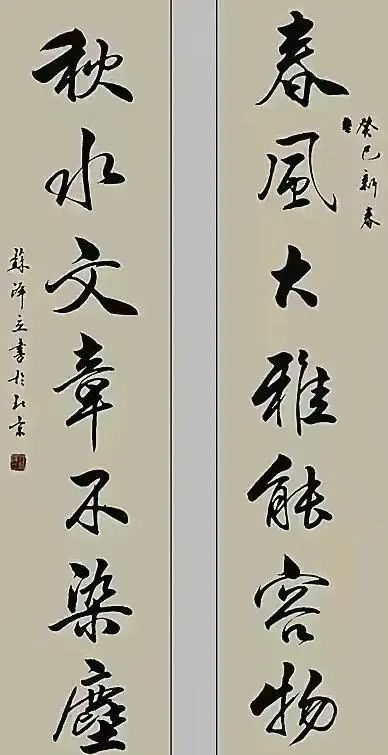 春風大雅能容物
癸巳新春
秋水文章不染塵
蘇澤立書於北京